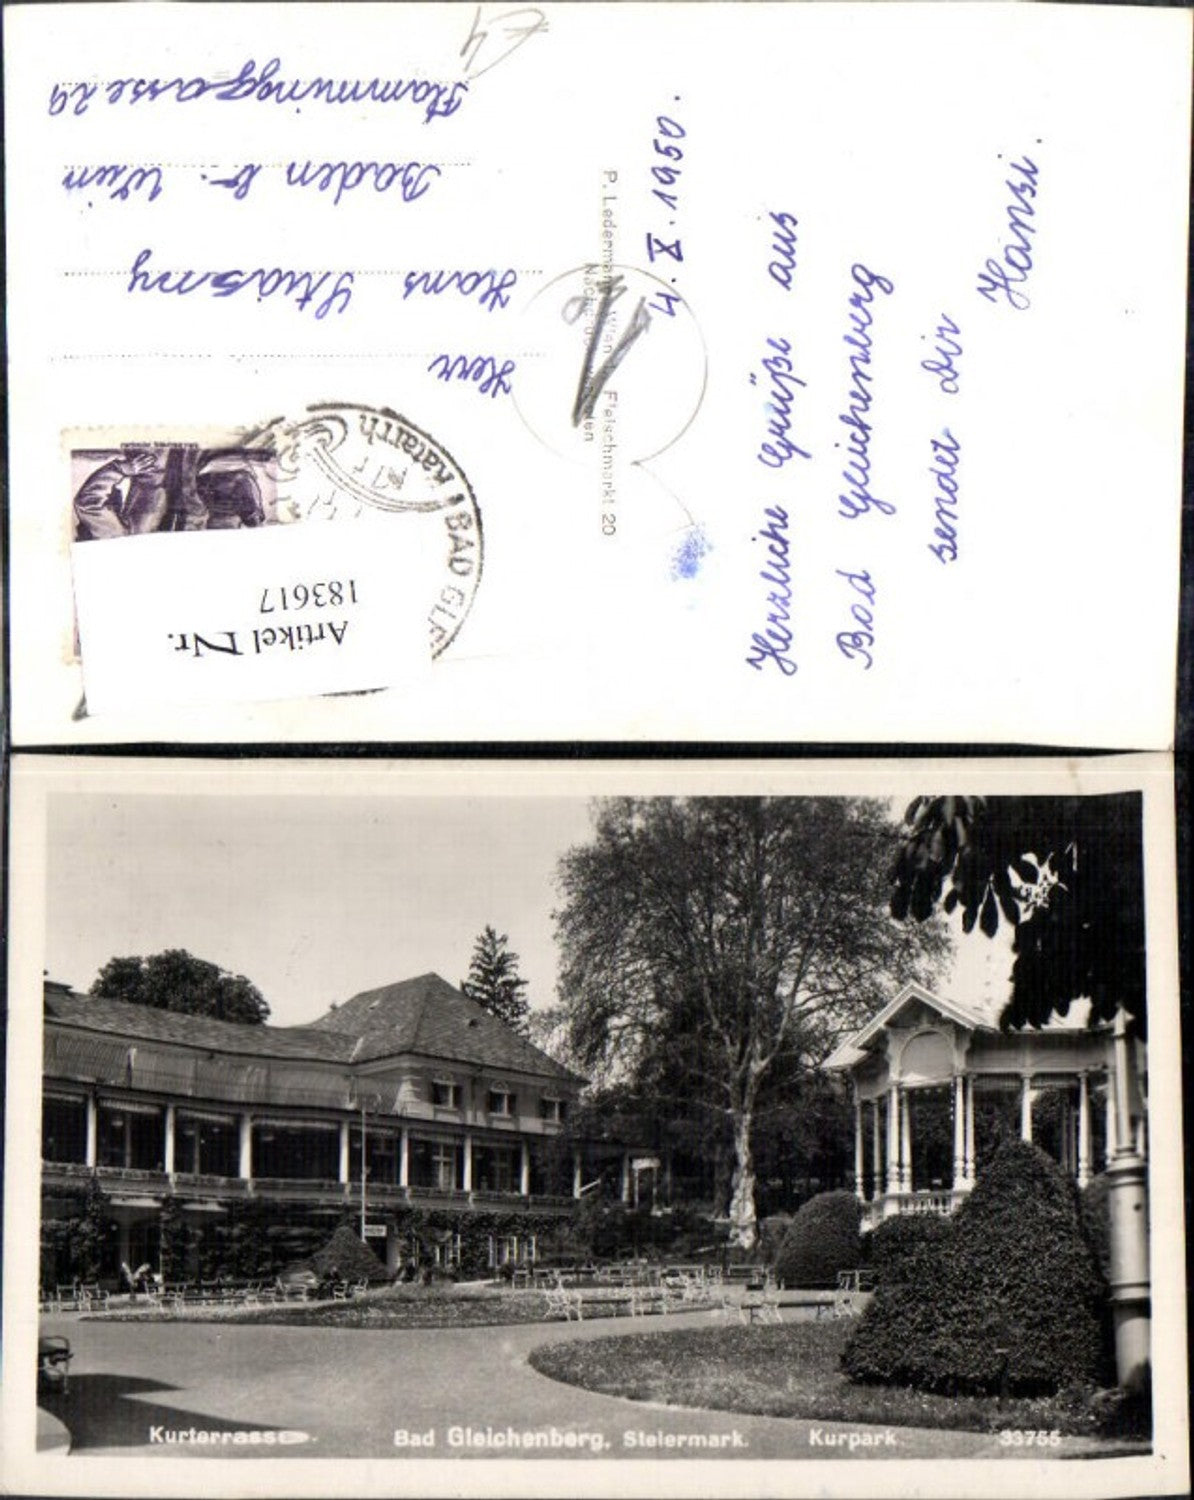 €4
4. X. 1950.
Herzliche Grüße aus
Bad Gleichenberg
sendet Dir
Hansi.
P. Ledermann, Wien I., Fleischmarkt 20
Herr
Hans
Baden b. Wien
Flammingasse 29
Katarrh
BAD GL
Artikel Nr.
183617
Kurterrasse.
Bad Gleichenberg, Steiermark.
Kurpark
33755